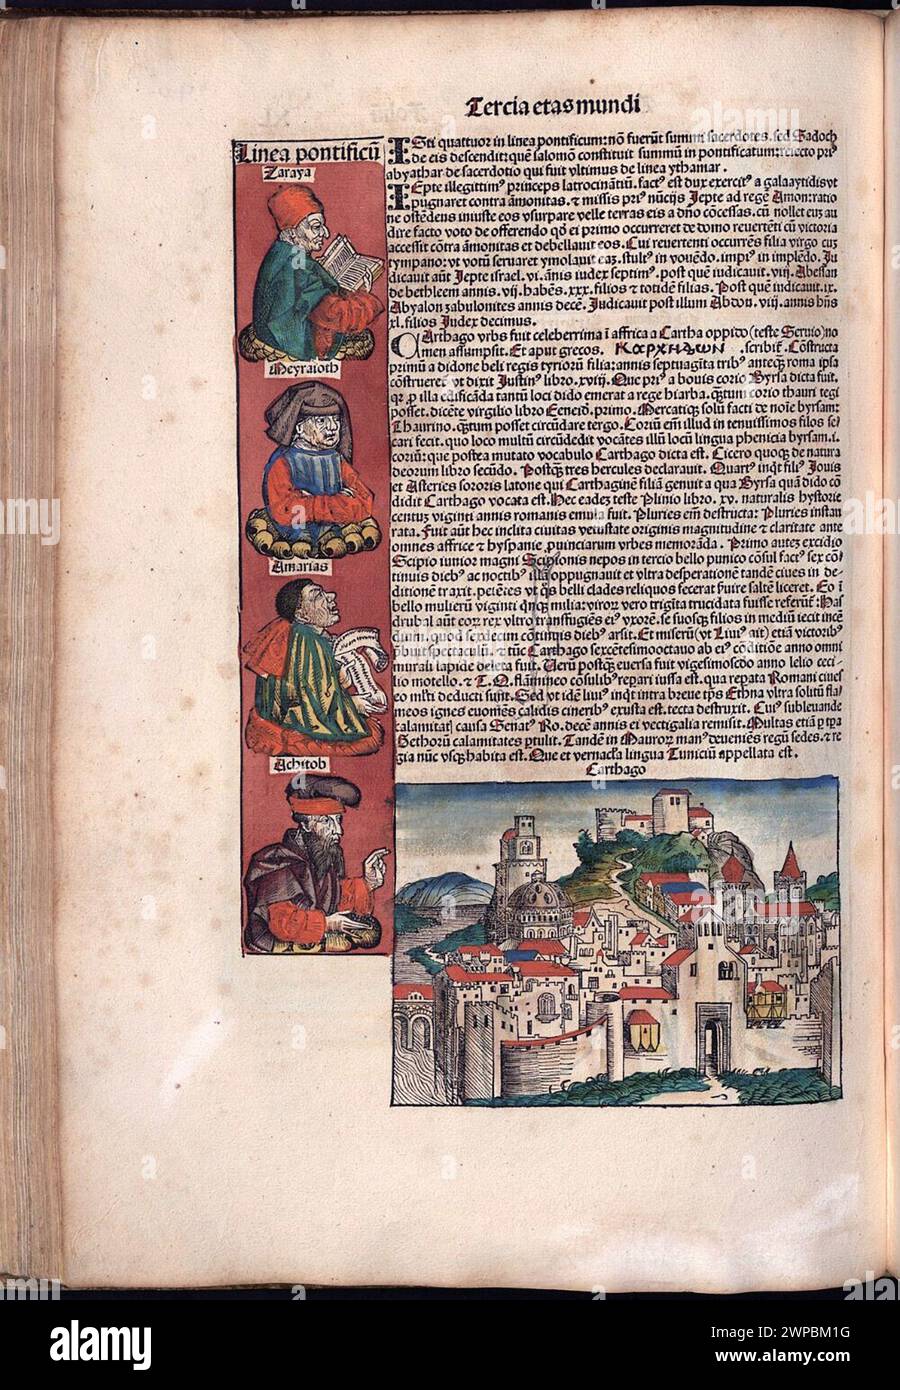 Tercia etas mundi
Linea pontificũ
Zaraya
Meyraioth
Amarias
Achitob
ISti quattuor in linea pontificum: nõ fuerũt summi sacerdotes. sed Sadoch
de eis descendit: quẽ salomõ constituit summũ in pontificatum: reiecto priꝰ
abyathar de sacerdotio qui fuit vltimus de linea ythamar.
IEpte illegittimꝰ princeps latrocinãtiũ. factꝰ est dux exercitꝰ a galaaytidis vt
pugnaret contra ãmonitas. ⁊ missis priꝰ nũcijs Jepte ad regẽ Amon: ratio
ne ostẽdens iniuste eos vsurpare velle terras eis a dño cõcessas. cũ nollet eum au
dire facto voto de offerendo qd̃ ei primo occurreret de domo reuertẽti cũ victoria
accessit cõtra ãmonitas et debellauit eos. Cui reuertenti occurrẽs filia virgo cum
tympano: vt votũ seruaret ymolauit eaz. stultꝰ in vouẽdo. impiꝰ in implẽdo. Ju
dicauit aũt Jepte israel. vi. ãnis iudex septimꝰ. post quẽ iudicauit. viij. Abessan
de bethleem annis. vij. habẽs. xxx. filios ⁊ totidẽ filias. Post quẽ iudicauit. ix.
Abyalon zabulonites annis decẽ. Judicauit post illum Abdon. viij. annis hñs
xl. filios Judex decimus.
CArthago vrbs fuit celeberrima ĩ affrica a Cartha oppido (teste Seruio) no
men assumpsit. Et aput grecos. ΚΑΡΧΗΔΩΝ .scribiẽ. Cõstructa
primũ a didone beli regis tyriorũ filia: annis septuagĩta tribꝰ anteqꝫ roma ipsa
cõstrueret̃ vt dixit Justinꝰ libro. xviij. Que priꝰ a bouis corio Byrsa dicta fuit.
qꝛ ꝓ illa edificãda tantũ loci dido emerat a rege hiarba. qꝫtum corio thauri tegi
posset. dicẽte virgilio libro Eneid. primo. Mercatiqꝫ solũ facti de noĩe byrsam:
Thaurino. qꝫtum posset circũdare tergo. Coriũ em̃ illud in tenuissimos filos se
cari fecit. quo loco multũ circũdedit vocãtes illũ locũ lingua phenicia byrsam. i.
coriũ: que postea mutato vocabulo Carthago dicta est. Cicero quoqꝫ de natura
deorum libro secũdo. Postqꝫ tres hercules declarauit. Quartꝰ inqt filꝰ Jouis
et Asteries sororis latone qui Carthaginẽ filiã genuit a qua Byrsa quã dido cõ
didit Carthago vocata est. Hec eadez teste Plinio libro. xv. naturalis hystorie
centum viginti annis romanis emula fuit. Pluries em̃ destructa: Pluries instau
rata. Fuit aũt hec inclita ciuitas vetustate originis magnitudine ⁊ claritate ante
omnes affrice ⁊ hyspanie ꝓuinciarum vrbes memorãda. Primo autez excidio
Scipio iunior magni Scipionis nepos in tercio bello punico cõsul factꝰ sex cõ
tinuis diebꝰ ac noctibꝰ illã oppugnauit et vltra desperationẽ tandẽ ciues in de-
ditionẽ traxit. petẽtes vt qs belli clades reliquos fecerat ẽuire saltẽ liceret. Eo ĩ
bello mulierũ viginti qnqꝫ milia: viroꝝ vero trigĩta trucidata fuisse referũt: Has
drubal aũt eoꝝ rex vltro transfugiẽs eiꝰ vxorẽ. se suosqꝫ filios in mediũ iecit incẽ
dium. quod sexdecim cõtinuis diebꝰ arsit. Et miserũ (vt Liuiꝰ ait) etiã victoribꝰ
p̃buit spectaculũ. ⁊ tũc Carthago sexcẽtesimooctauo ab eiꝰ cõditiõe anno omni
murali lapide deleta fuit. Verũ postqꝫ euersa fuit vigesimoscd̃o anno lelio ceci
lio motello. ⁊ T. Q. flamineo cõsulibꝰ repari iussa est. qua repata Romani ciues
eo mĩsti deducti sunt. Sed vt idẽ liuiꝰ inqt intra breue tp̃s Ethna vltra solitũ fla
meos ignes euomẽs calidis cineribꝰ exusta est. tecta destruxit. Cuiꝰ subleuande
calamitatĩ causa Senatꝰ Ro. decẽ annis ei vectigalia remisit. Multas etiã ꝑ tp̃a
Gethorũ calamitates ꝑtulit. Tandẽ in Mauroꝝ manꝰ deueniẽs regũ sedes. ⁊ re
gia nũc vsqꝫ habita est. Que et vernacla lingua Tunicũ appellata est.
Carthago
alamy
alamy
Image ID: 2WPBM1G
www.alamy.com